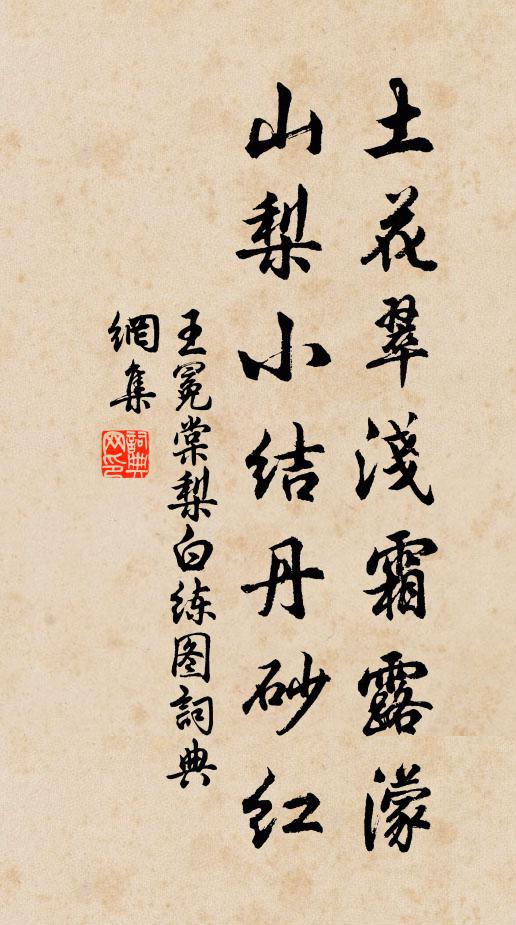 土花翠淺霜露濛
山梨小结丹砂红
王冕棠梨白练图詞典
網集
詞典
网印